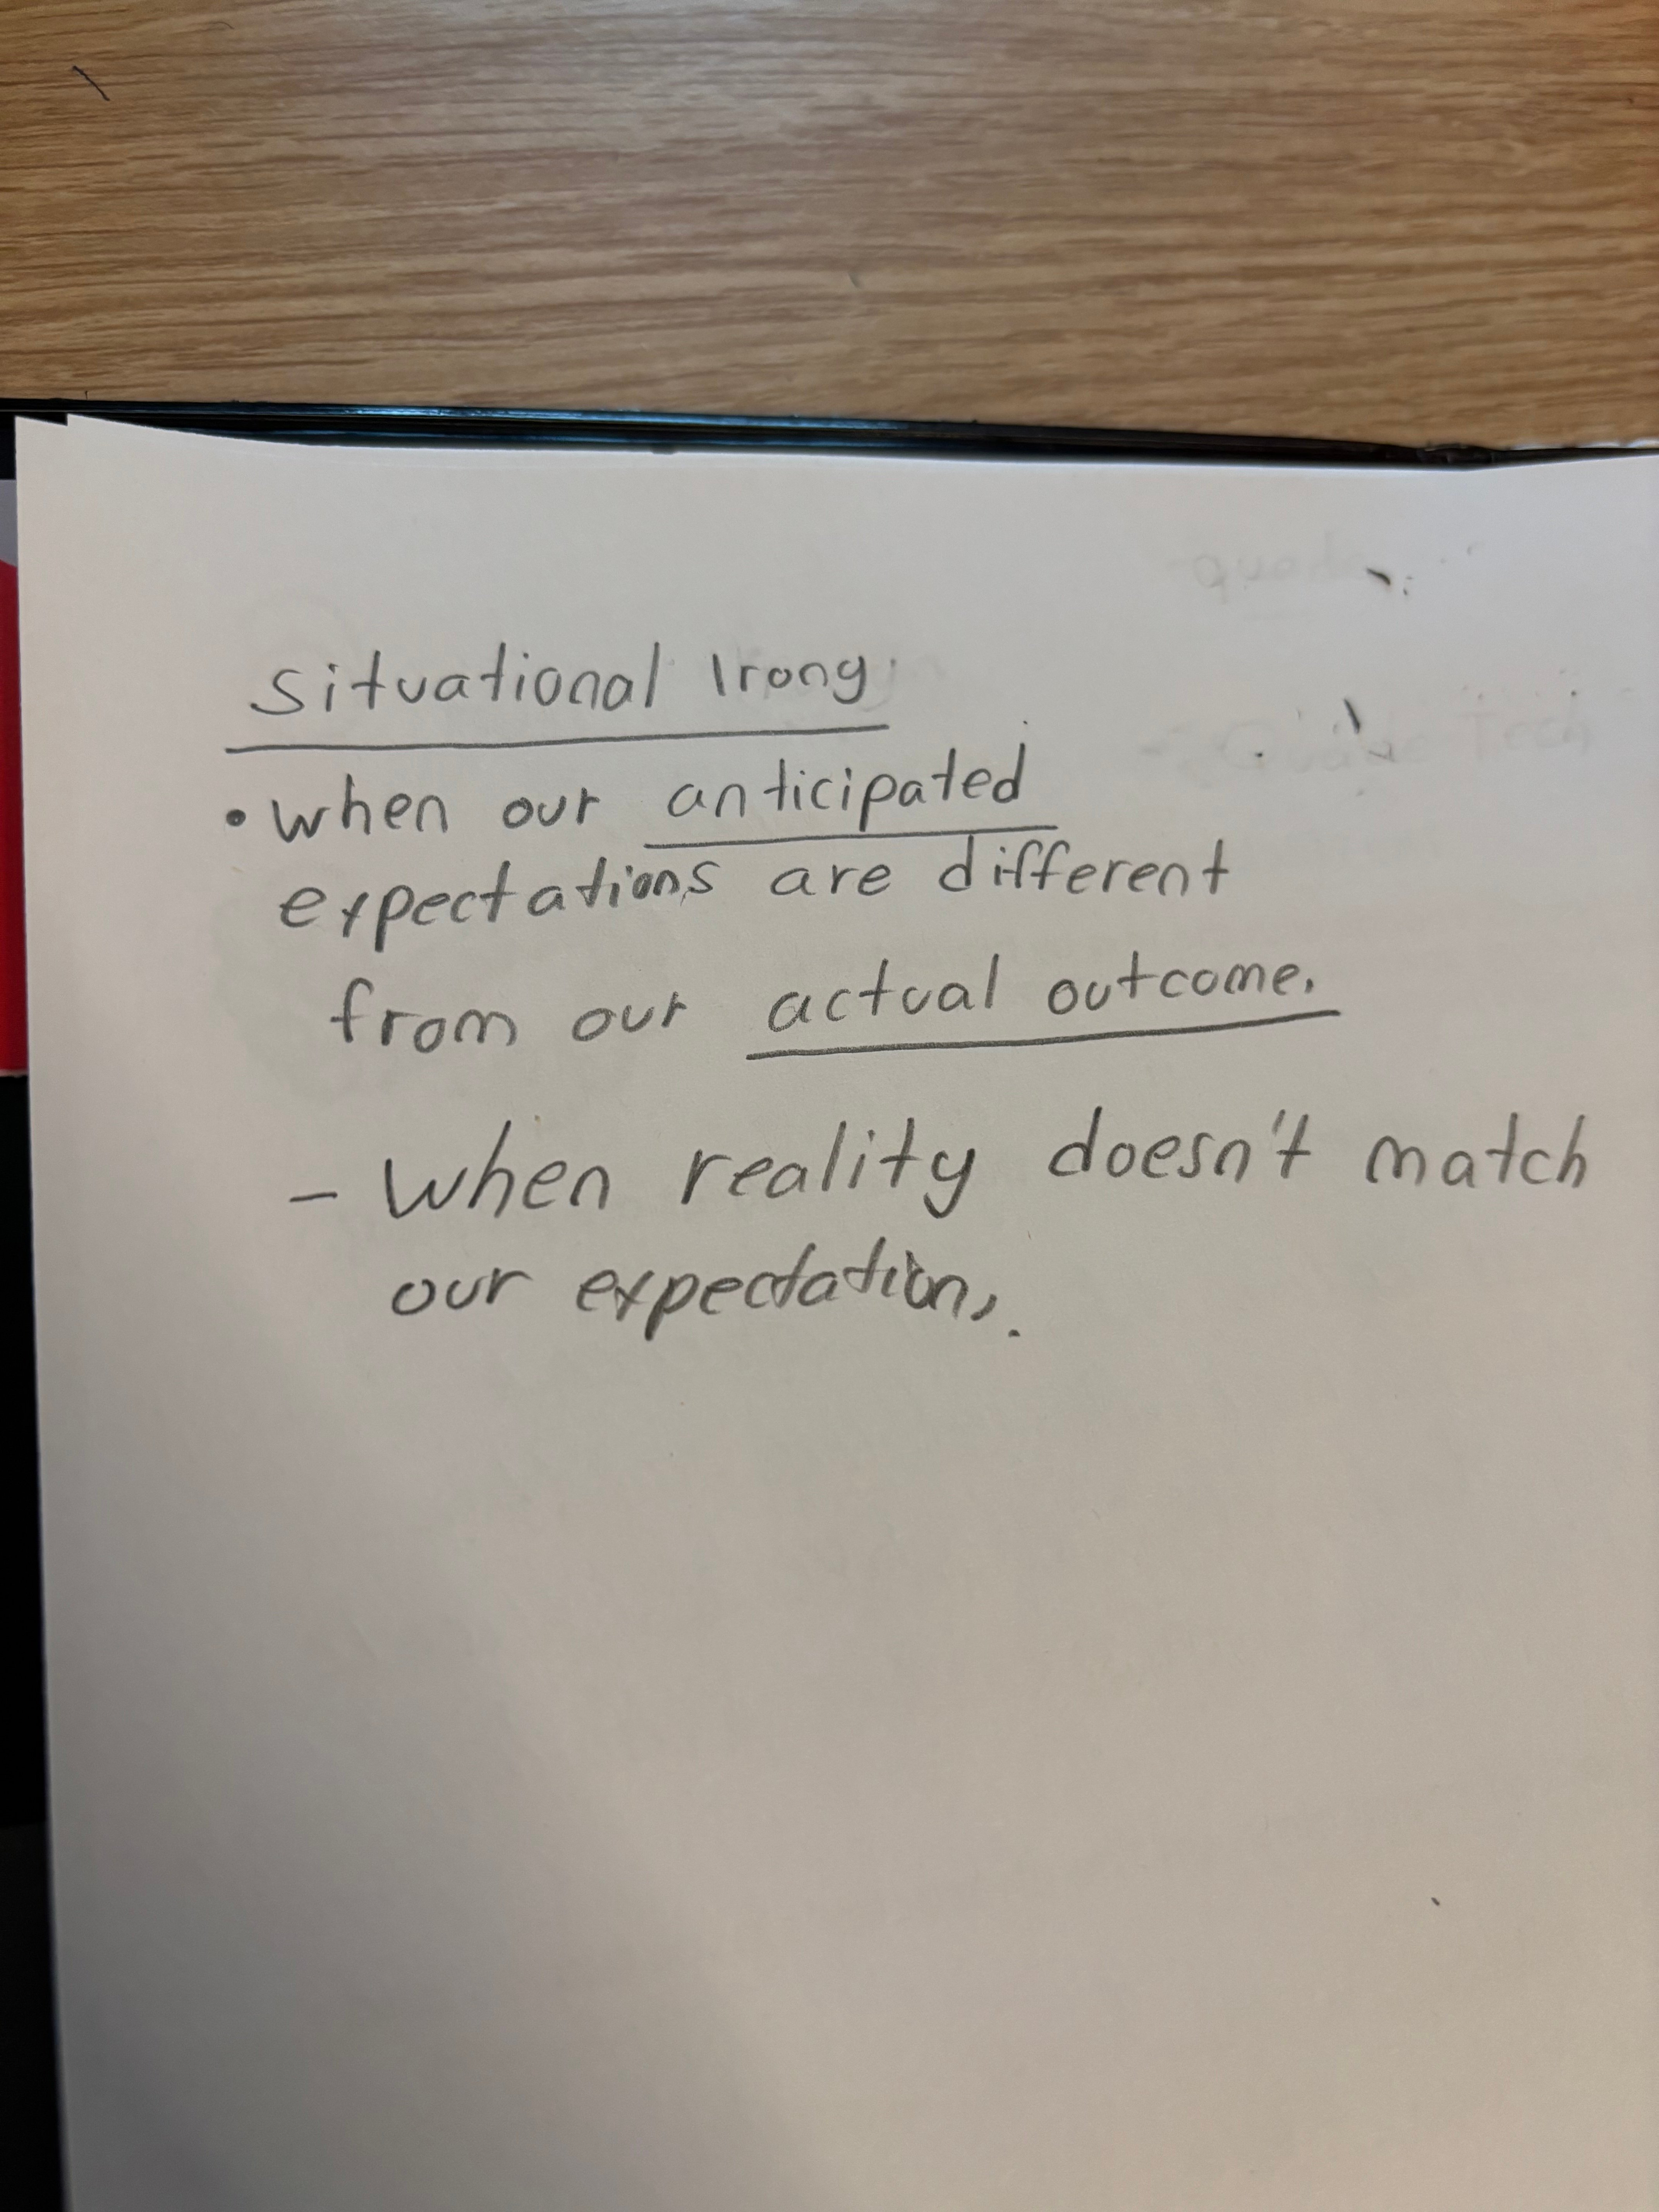 Situational Irony
• when our anticipated
expectations are different
from our actual outcome.
- When reality doesn't match
our expectation,.